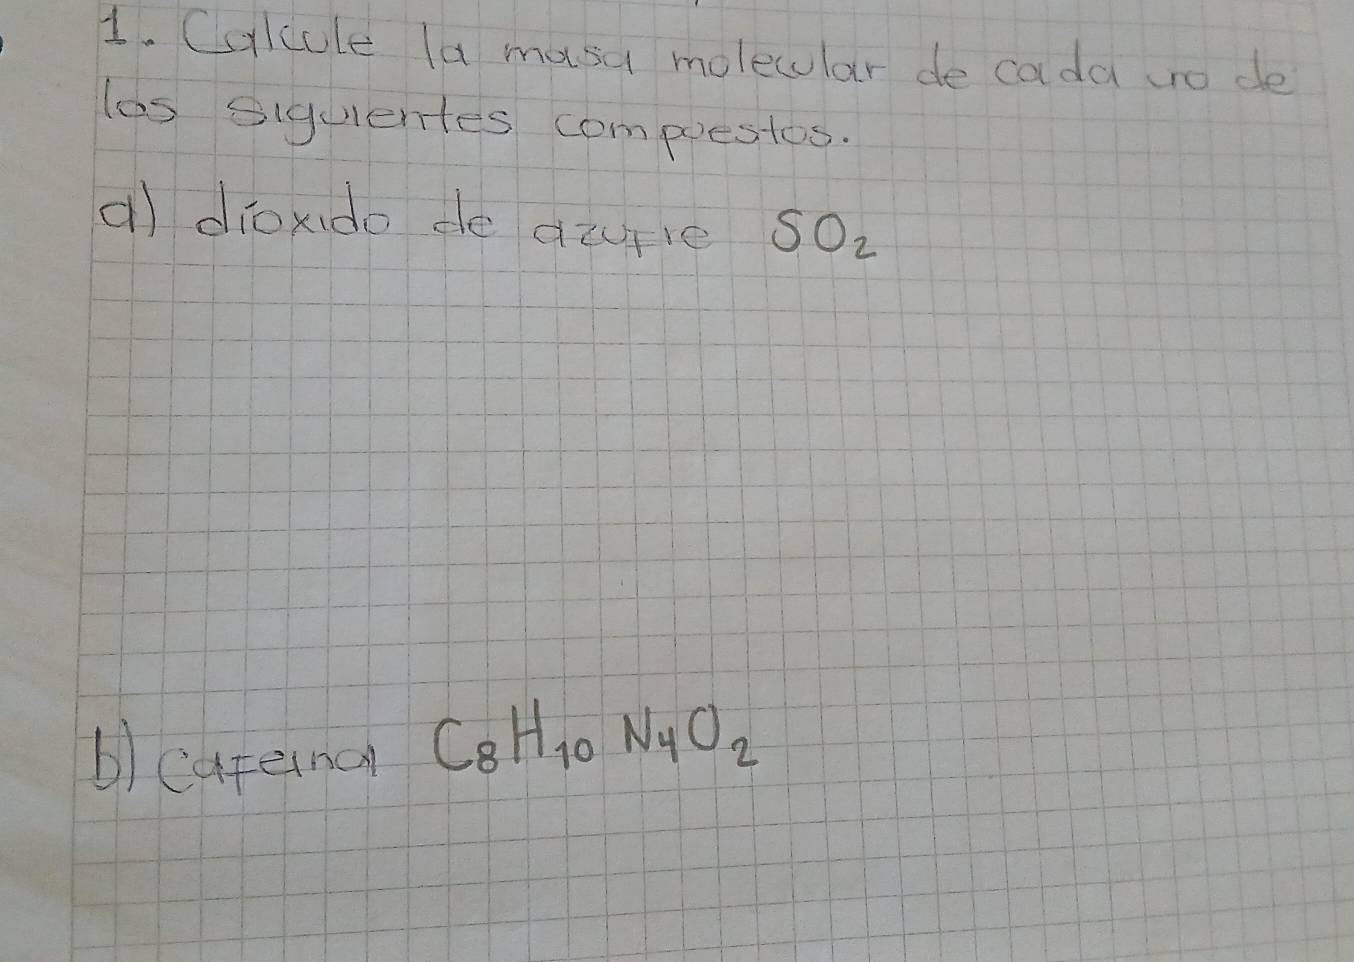 1. Calcule la masa molecular de cada uno de
los siguientes compuestos.
a) dioxido de azufre SO₂
b) cafeina C₈H₁₀N₄O₂